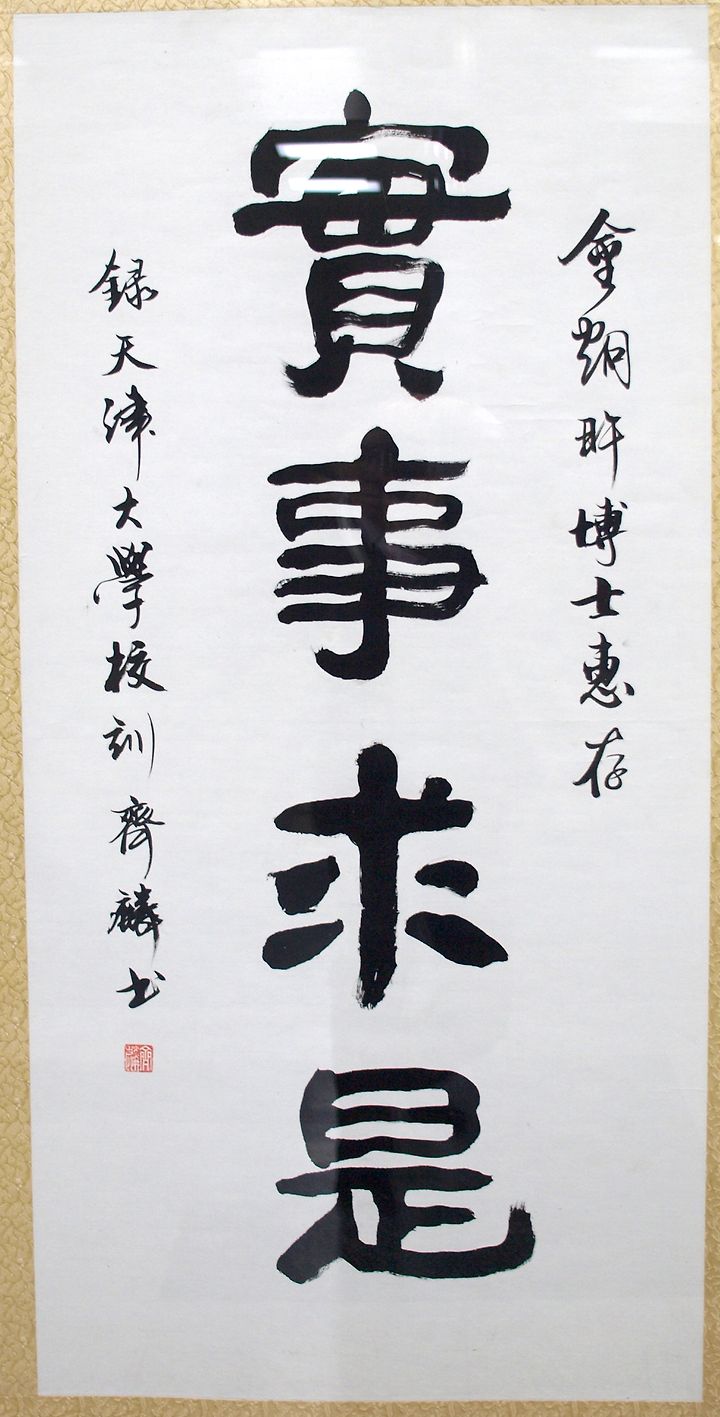 金炯旿博士惠存
實事求是
録天津大學校訓齊麟书